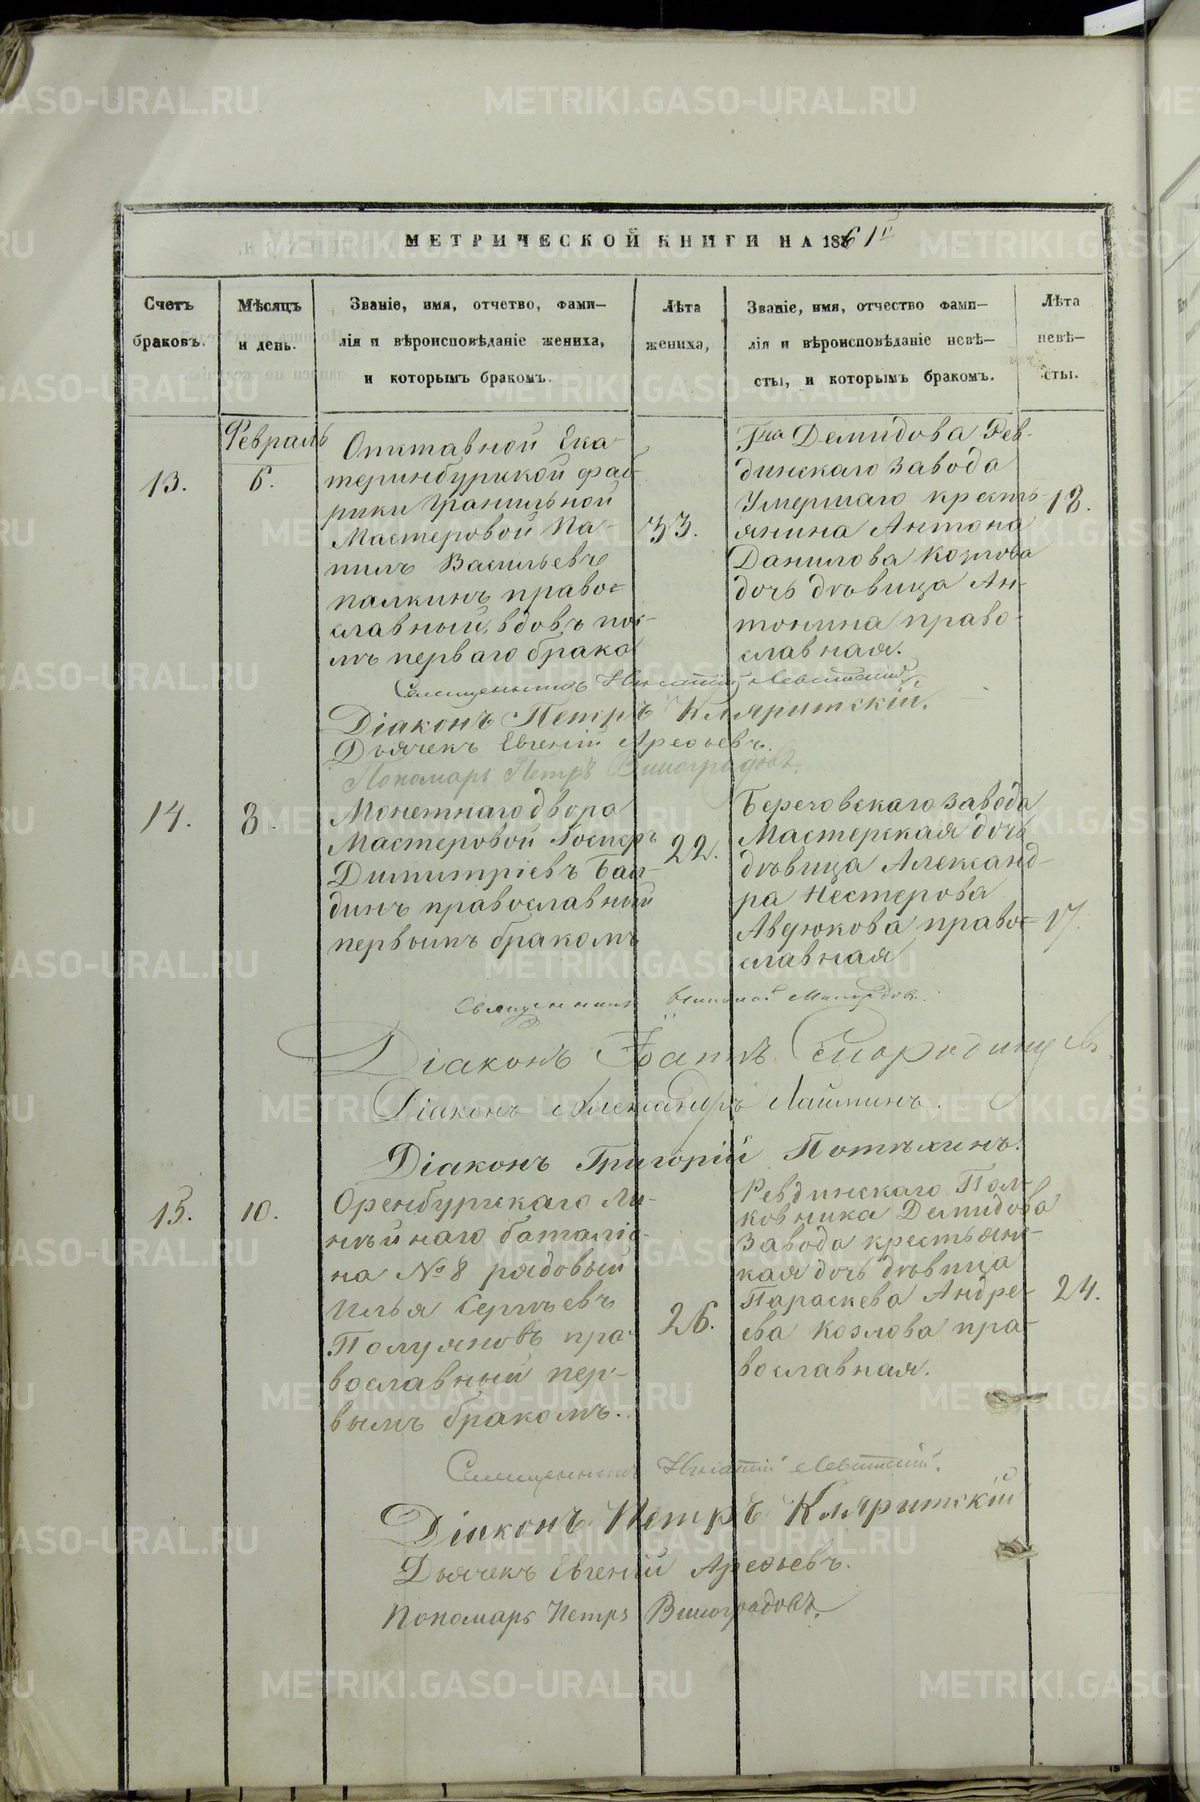 МЕТРИЧЕСКОЙ КНИГИ НА 1861й
Счетъ браковъ.
Мѣсяцъ и день.
Званіе, имя, отчетво, фами-
лія и вѣроисповѣданіе жениха,
и которымъ бракомъ.
Лѣта жениха,
Званіе, имя, отчество фами-
лія и вѣроисповѣданіе невѣ-
сты, и которымъ бракомъ.
Лѣта невѣ-
сты.
Февраль
13.
6.
Отставной Ека-
теринбургской фаб-
рики Гранильной
Мастеровой Па-
пилъ Васильевъ
Палкинъ правос-
славный, вдовъ пос-
лѣ перваго брака
33.
Гна Демидова Рев-
динскаго завода
Умершаго кресть-
янина Антона
Данилова Козлова
дочь дѣвица Ан-
тонина право-
славная.
18.
Священникъ Игнатій Левитскій.
Діаконъ Петръ Кляритскій.
Дьячекъ Евгеній Арефьевъ.
Пономарь Петръ Виноградовъ.
14.
8.
Монетнаго двора
Мастеровой
Димитріевъ
динъ православный
первымъ бракомъ
22.
Березовскаго завода
Мастерская дочь
дѣвица Александ-
ра Нестерова
Авдюкова правос-
славная
17.
Священникъ
Діаконъ Іоаннъ
Діаконъ Александръ
Діаконъ Григорій Потѣхинъ.
15.
10.
Оренбургскаго Ли-
нѣйнаго баталіо-
на № 8 рядовый
Илья Сергѣевъ
Полуяновъ пра-
вославный пер-
вымъ бракомъ.
26.
Ревдинскаго Пол-
ковника Демидова
завода крестьянс-
кая дочь дѣвица
Параскева Андре-
ева Козлова пра-
вославная.
24.
Священникъ Игнатій Левитскій.
Діаконъ Петръ Кляритскій
Дьячекъ Евгеній Арефьевъ.
Пономарь Петръ Виноградовъ.
METRIKI.GASO-URAL.RU